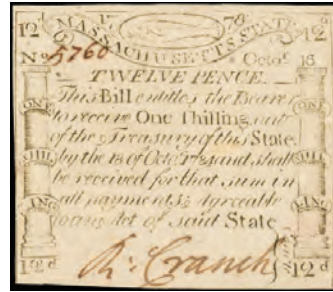 17 76
12d MASSACHUSETTS STATE 12d
No 5760 Octor. 18
TWELVE PENCE.
This Bill entitles the Bearer
to receive One Shilling out
of the Treasury of this State
by the 18 of Octor and shall
be received for that Sum in
all payments Agreeable
to an Act of said State
ONE SHIL LING
ONE SHIL LING
12d R: Cranch 12d